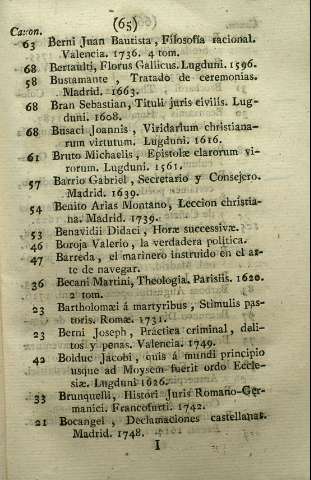 (65)
Caxon.
63 Berni Juan Bautista, Filosofia racional.
Valencia. 1736. 4 tom.
68 Bertaulti, Florus Gallicus. Lugduni. 1596.
58 Bustamante, Tratado de ceremonias.
Madrid. 1663.
68 Bran Sebastian, Tituli juris civilis. Lug-
duni. 1608.
68 Busaci Joannis, Viridarium christiana-
rum virtutum. Lugduni. 1616.
61 Bruto Michaelis, Epistolæ clarorum vi-
rorum. Lugduni. 1561.
57 Barrio Gabriel, Secretario y Consejero.
Madrid. 1639.
54 Benito Arias Montano, Leccion christia-
na. Madrid. 1739.
53 Benavidii Didaci, Horæ successivæ.
46 Boroja Valerio, la verdadera politica.
47 Barreda, el marinero instruido en el ar-
te de navegar.
36 Becani Martini, Theologia. Parisiis. 1620.
2 tom.
23 Bartholomæi á martyribus, Stimulis pas-
toris. Romæ. 1731.
23 Berni Joseph, Práctica criminal, deli-
tos y penas. Valencia. 1749.
42 Bolduc Jacobi, quis á mundi principio
usque ad Moysem fuerit ordo Eccle-
siæ. Lugduni 1626.
33 Brunquelli, Histori Juris Romano-Ger-
manici. Francofurti. 1742.
21 Bocangel, Declamaciones castellanas.
Madrid. 1748.
I